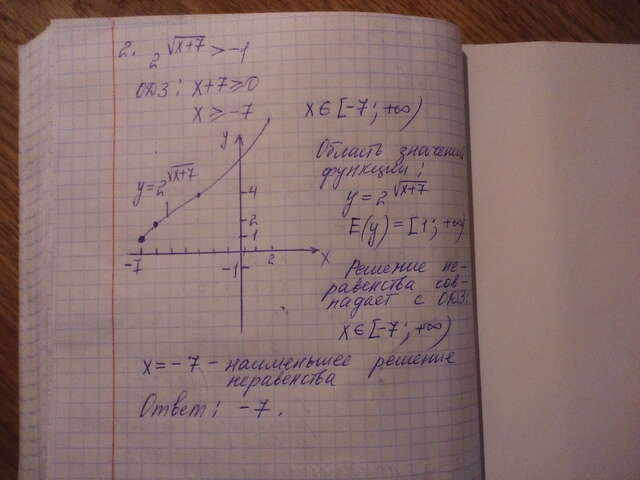 2. 2^√x+7 > -1
ОДЗ: x+7≥0
x ≥ -7
x ∈ [-7; +∞)
y
y=2^√x+7
4
2
1
-7
-1
2
x
Область значений
функции:
y=2^√x+7
E(y)=[1; +∞)
Решение не-
равенства сов-
падает с ОДЗ:
x ∈ [-7; +∞)
x = -7 - наименьшее решение
неравенства
Ответ: -7.